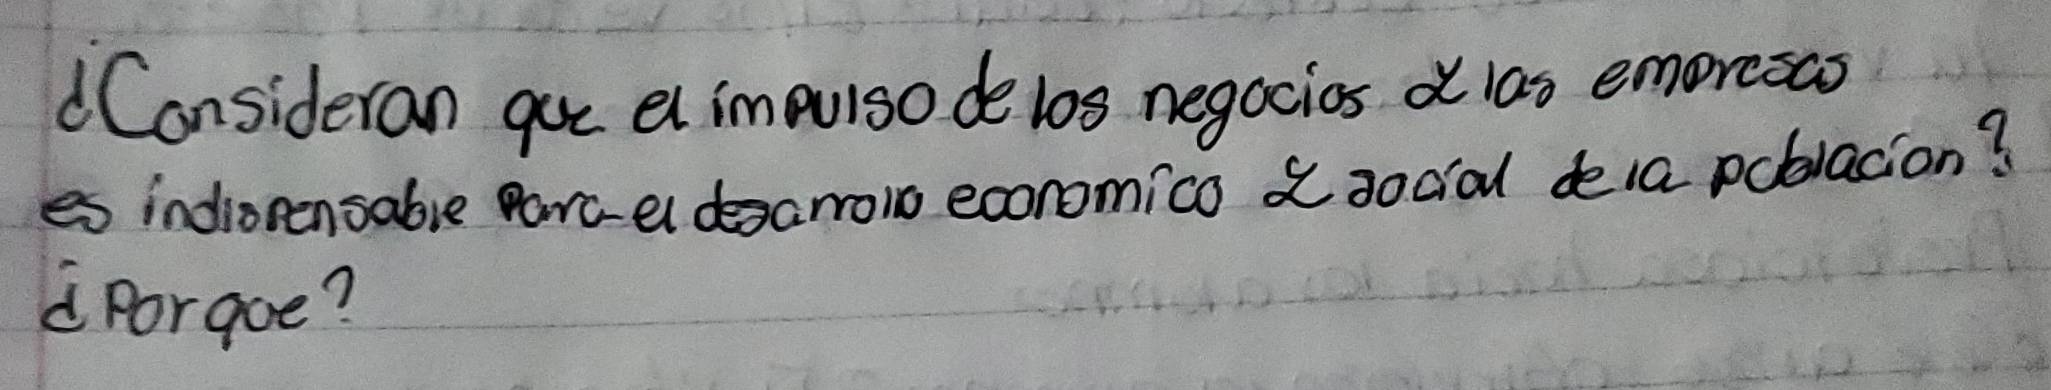 ¿Consideran que el impulso de los negocios y las empresas
es indispensable para el desarrollo economico y social de la poblacion?
¿Por que?